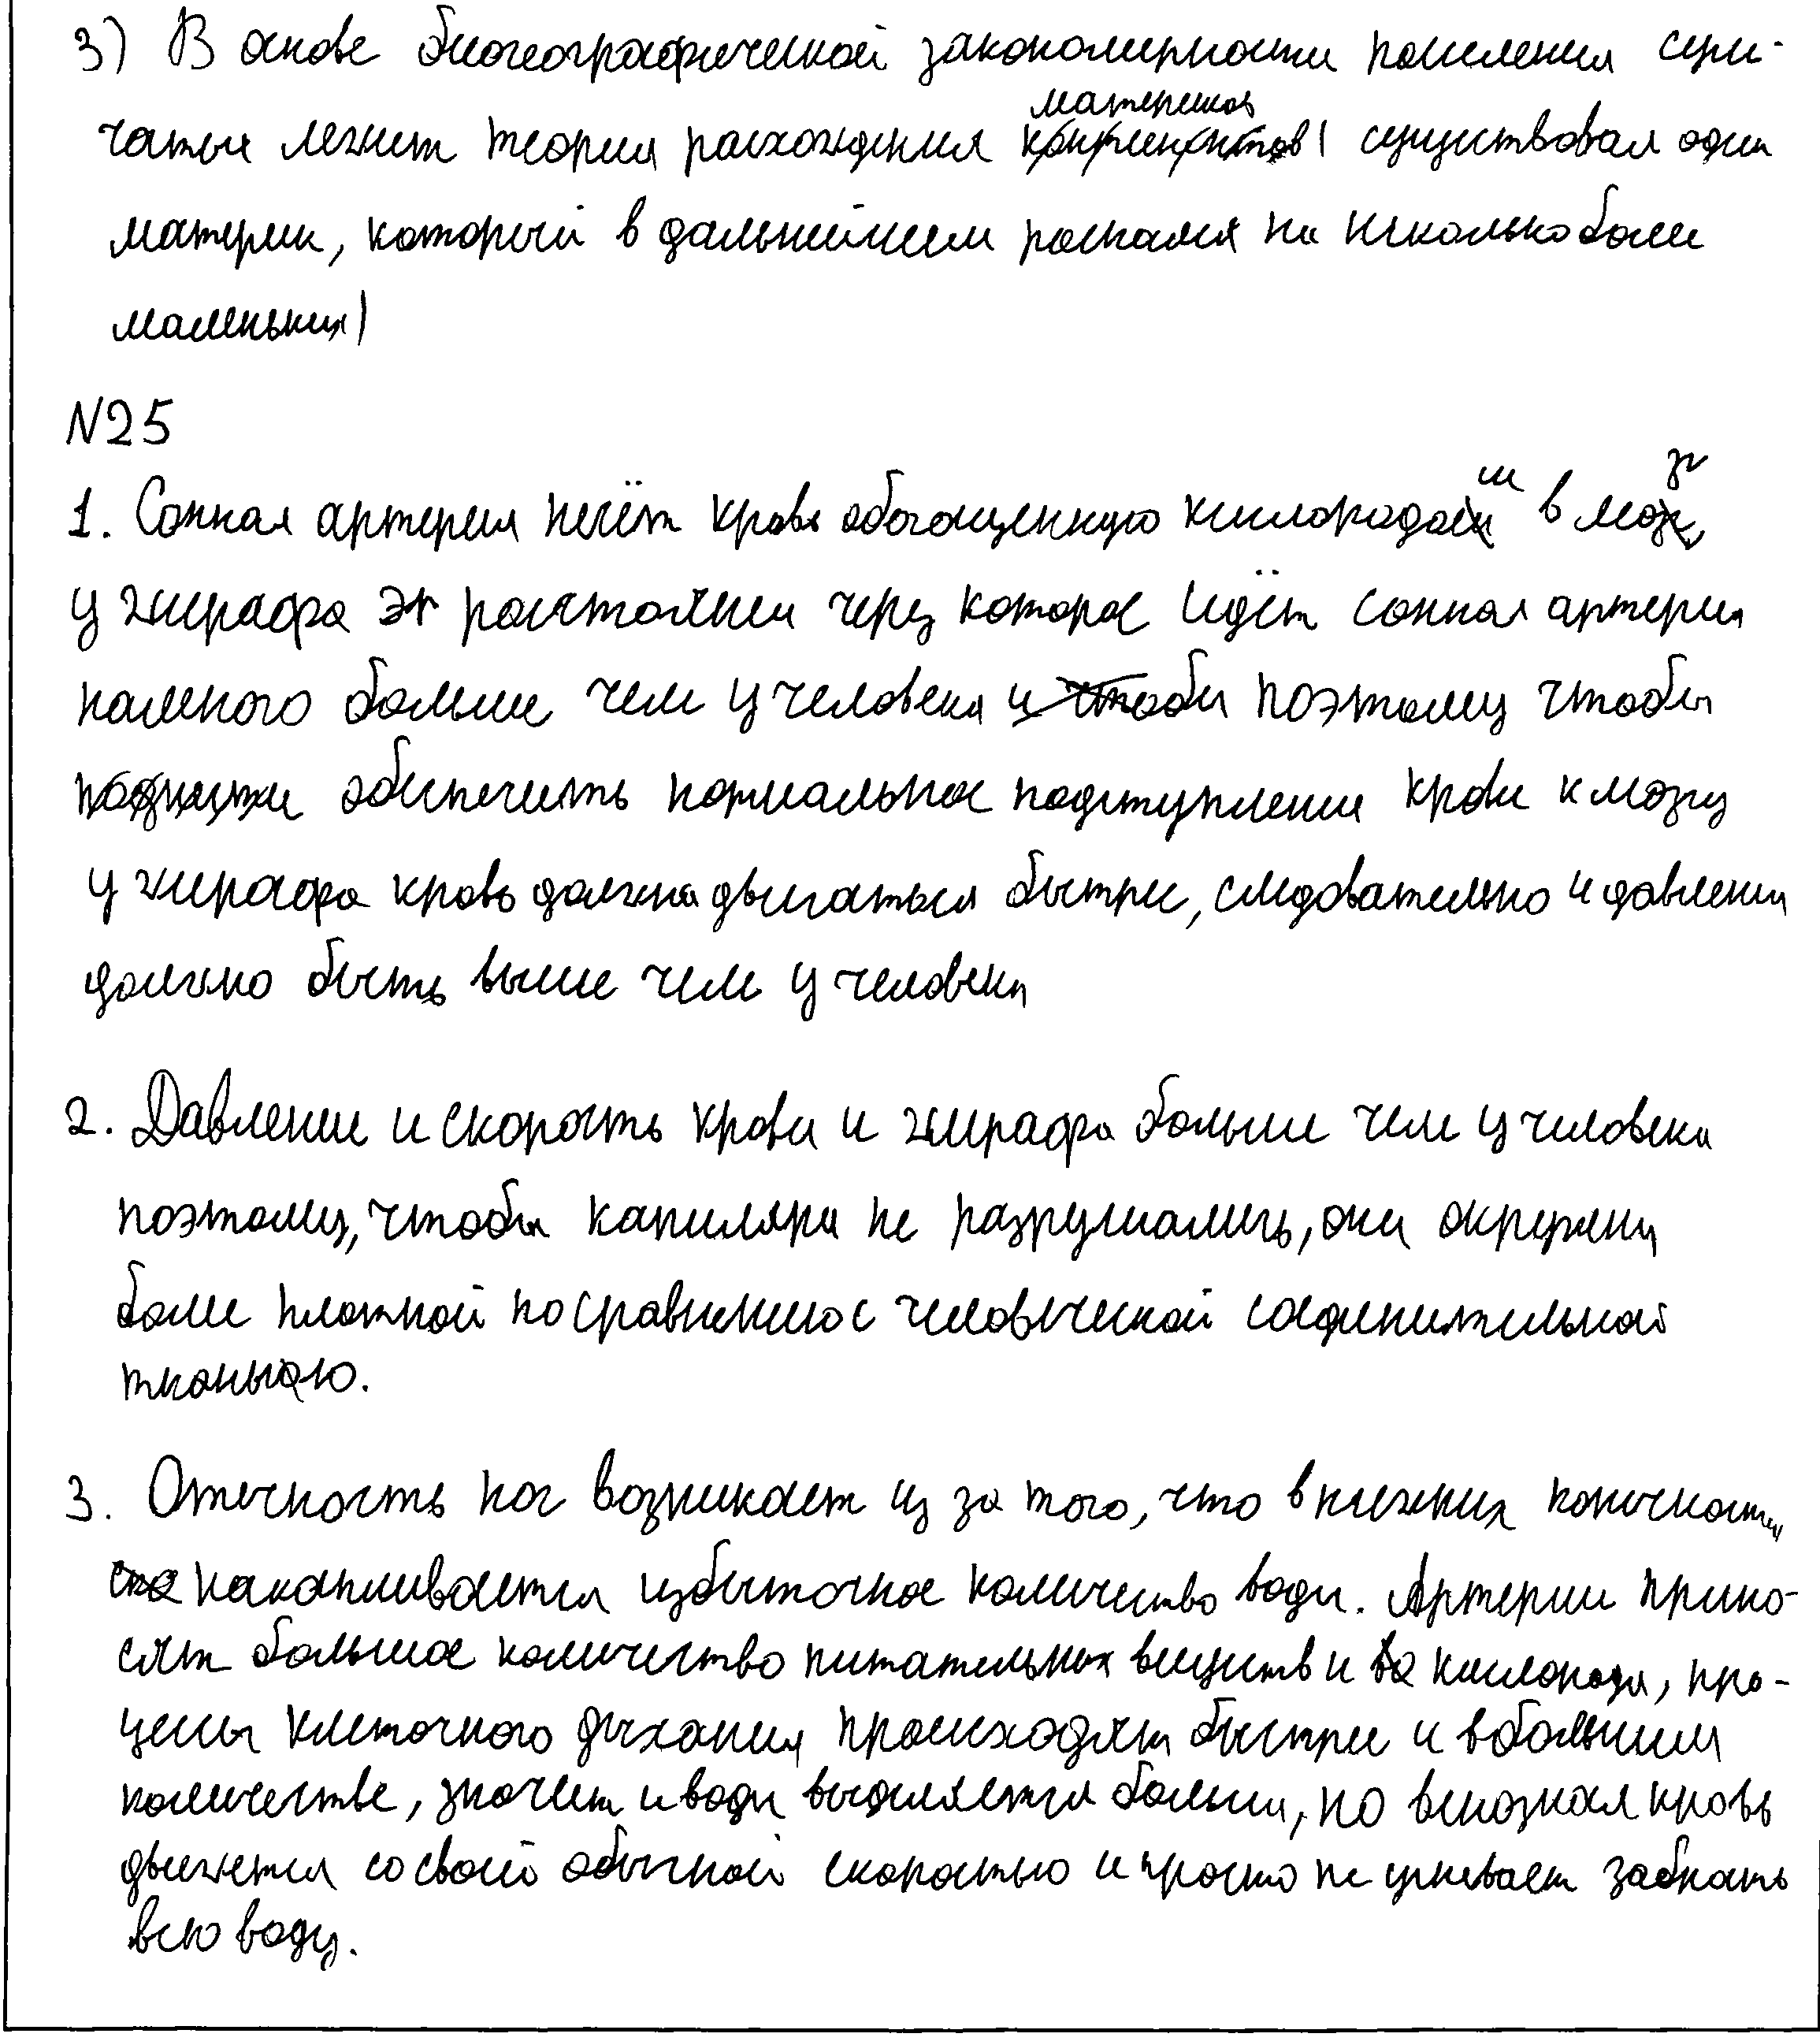 3) В основе биогеографической закономерности поселения сум-
чатых лежит теория расхождения материков (существовал один
материк, который в дальнейшем распался на несколько более
маленьких)
N25
1. Сонная артерия несёт кровь обогащенную кислородом в мозг
у жирафа эт расстояние через которое идёт сонная артерия
намного больше чем у человека поэтому чтобы
обеспечить нормальное подступление крови к мозгу
у жирафа кровь должна двигаться быстрее, следовательно и давление
должно быть выше чем у человека
2. Давление и скорость крови и жирафа больше чем у человека
поэтому, чтобы капиляры не разрушались, они окружены
более плотной по сравнению с человеческой соединительной
тканью.
3. Отечность ног возникает из за того, что в нижних конечностях
накапливается избыточное количество воды. Артерии прино-
сят большое количество питательных веществ и кислорода, про-
цессы клеточного дыхания происходят быстрее и в большем
количестве, значит и воды выделяется больше, но венозная кровь
движется со своей обычной скоростью и просто не успевает забрать
всю воду.